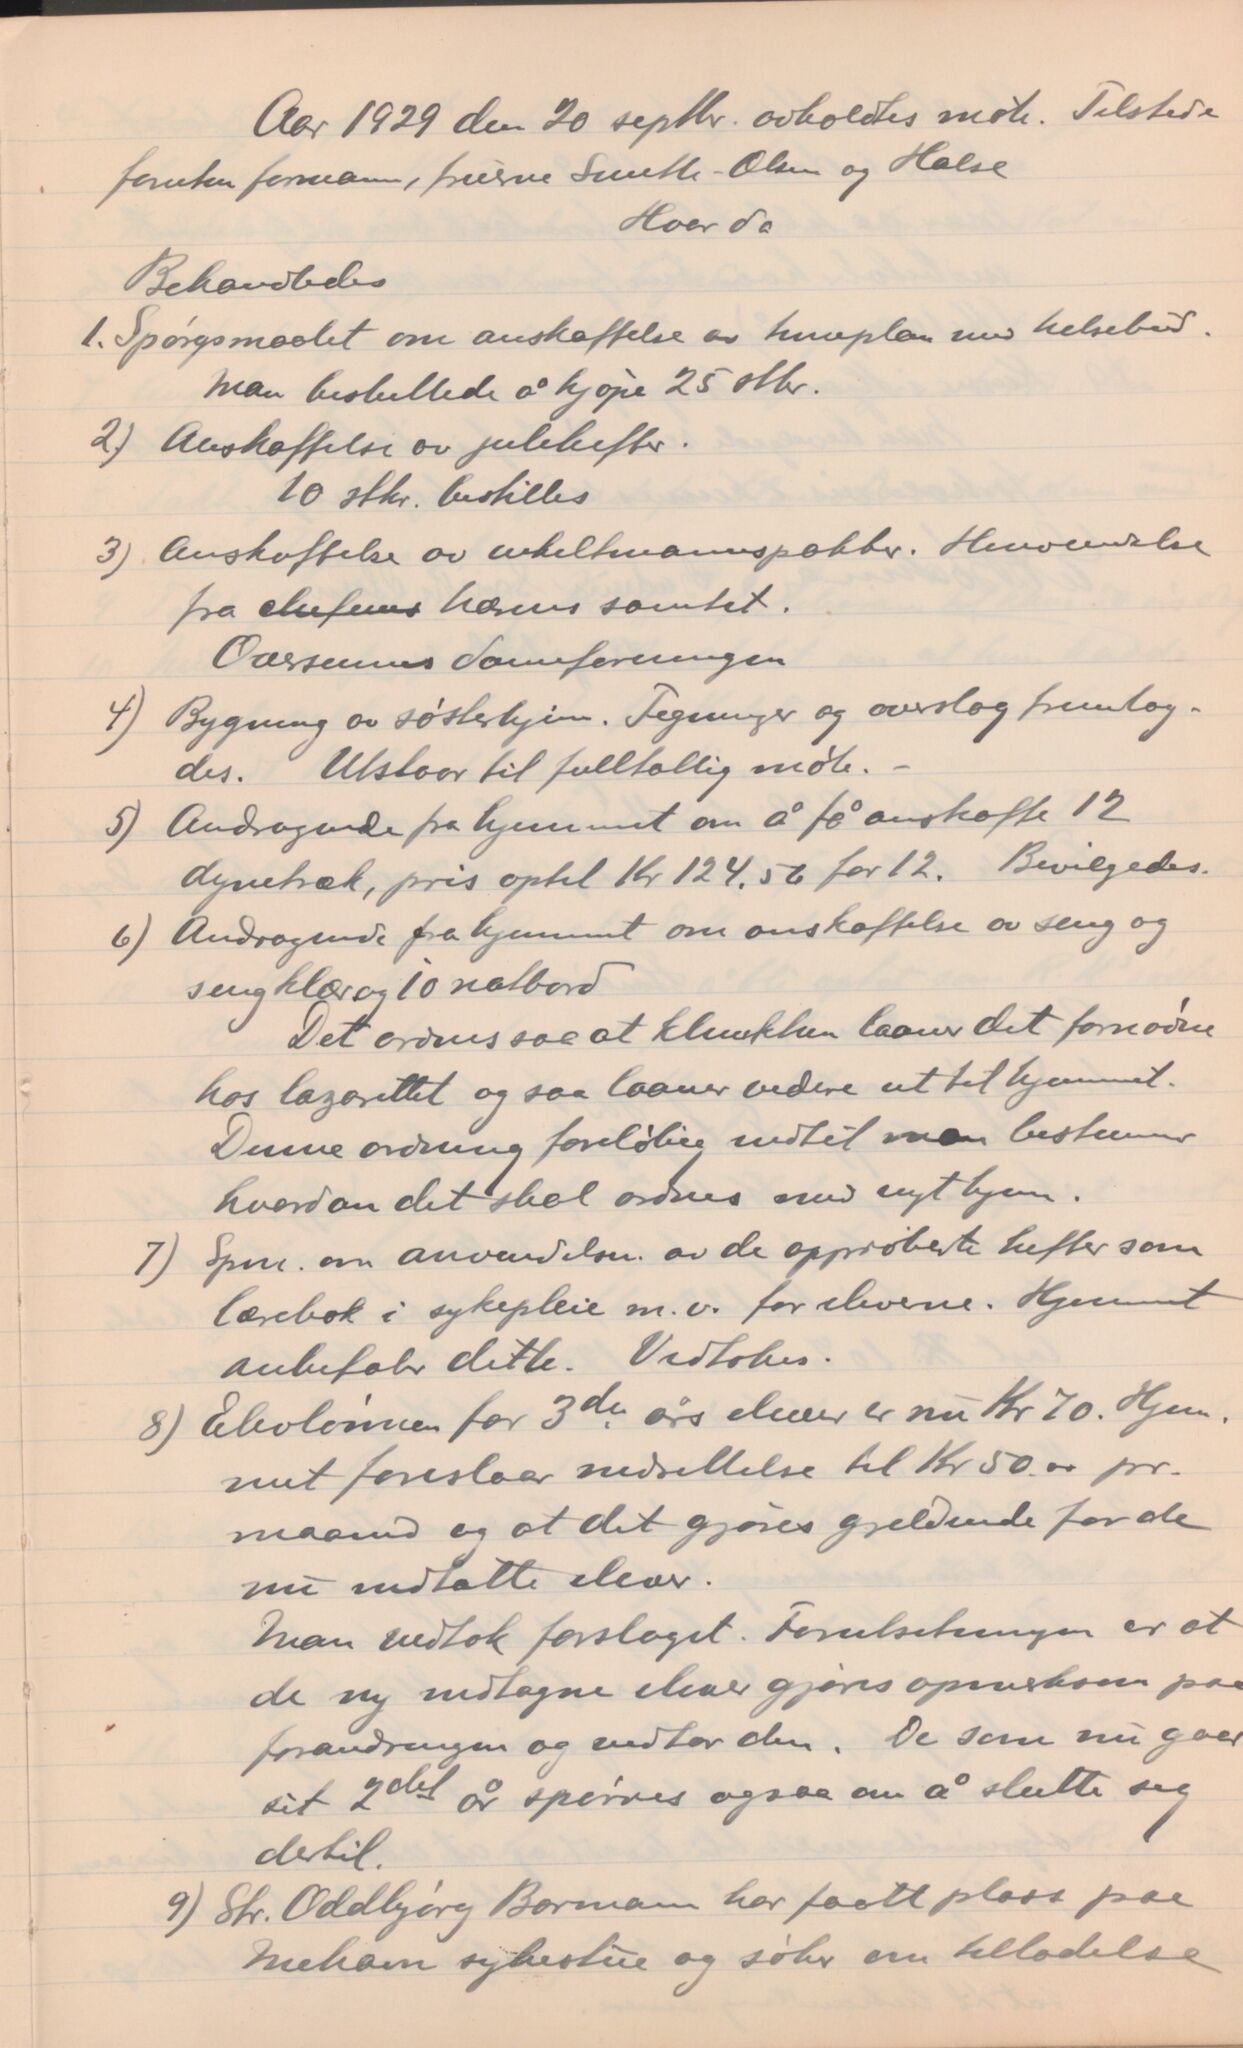 Aar 1929 den 20 septbr. avholdtes møte. Tilstede
foruten formann, fruerne Smith-Olsen og Halse
Hvorda
Behandledes
1. Spørgsmaalet om anskaffelse av timeplan med helsebud.
Man besluttede å kjøpe 25 stkr.
2) Anskaffelse av julehefter.
10 stkr. bestilles
3) Anskaffelse av enkeltmannspakker. Henvendelse
fra hærens sanitet.
Oversennes Dameforeningen
4) Bygning av søsterhjem. Tegninger og overslag fremlag-
des. Utstaar til fulltallig møte. -
5) Andragende fra hjemmet om å få anskaffe 12
dynetræk, pris optil Kr 124.56 for 12. Bevilgedes.
6) Andragende fra hjemmet om anskaffelse av seng og
sengklær og 10 natbord
Det ordnes saa at klinikken laaner det fornødne
hos lazarettet og saa laaner videre ut til hjemmet.
Denne ordning foreløbig indtil man bestemmer
hvordan det skal ordnes med nyt hjem.
7) Spm. om anvendelsen av de approberte hefter som
lærebok i sykepleie m.v. for eleverne. Hjemmet
anbefaler dette. Vedtokes.
8) Elevlønnen for 3de års elever er nu Kr 70. Hjem.
met foreslaar nedsettelse til Kr 50.00 pr.
maaned og at det gjøres gjeldende for de
nu indtatte elever.
Man vedtok forslaget. Forutsetningen er at
de ny indtagne elever gjøres opmerksom paa
forandringen og vedtar den. De som nu gaar
sit 2det år spørres ogsaa om å slutte seg
dertil.
9) Str. Oddbjørg Bormann har faatt plass paa
Mehavn sykestue og søker om tilladelse